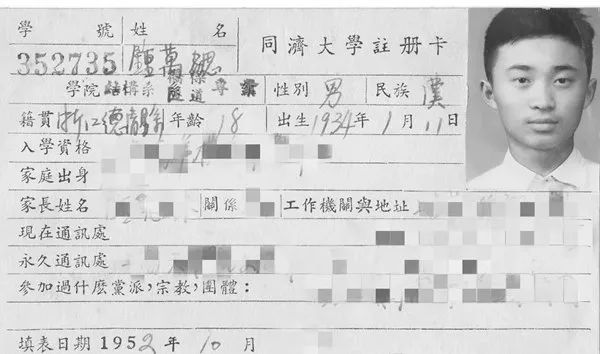 學 號 姓 名 同濟大學註册卡
352735 鍾萬勰
學院 結構系 橋隧 專業 性別 男 民族 漢
籍貫 浙江德清縣 年齡 18 出生 1934年 1月 11日
入學資格
家庭出身
家長姓名 關係 工作機關與地址
現在通訊處
永久通訊處
參加過什麽黨派,宗教,團體:
填表日期 1952年 10月